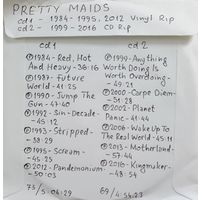 PRETTY MAIDS
cd1 - 1984-1995, 2012 Vinyl Rip
cd2 - 1999-2016 CD Rip
cd1
① 1984 - Red, Hot
And Heavy - 36:16
② 1987 - Future
World - 41:25
③ 1990 - Jump The
Gun - 47:40
④ 1992 - Sin-Decade -
- 45:12
⑤ 1993 - Stripped -
- 38:29
⑥ 1995 - Scream -
- 45:25
⑦ 2012 - Pandemonium -
- 50:03
73/5:04:29
cd2
① 1999 - Anything
Worth Doing Is
Worth Overdoing -
- 49:21
② 2000 - Carpe Diem -
- 51:28
③ 2002 - Planet
Panic - 51:44
④ 2006 - Wake Up To
The Real World - 45:11
⑤ 2013 - Motherland -
- 57:44
⑥ 2016 - Kingmaker -
- 48:54
69/4:54:23